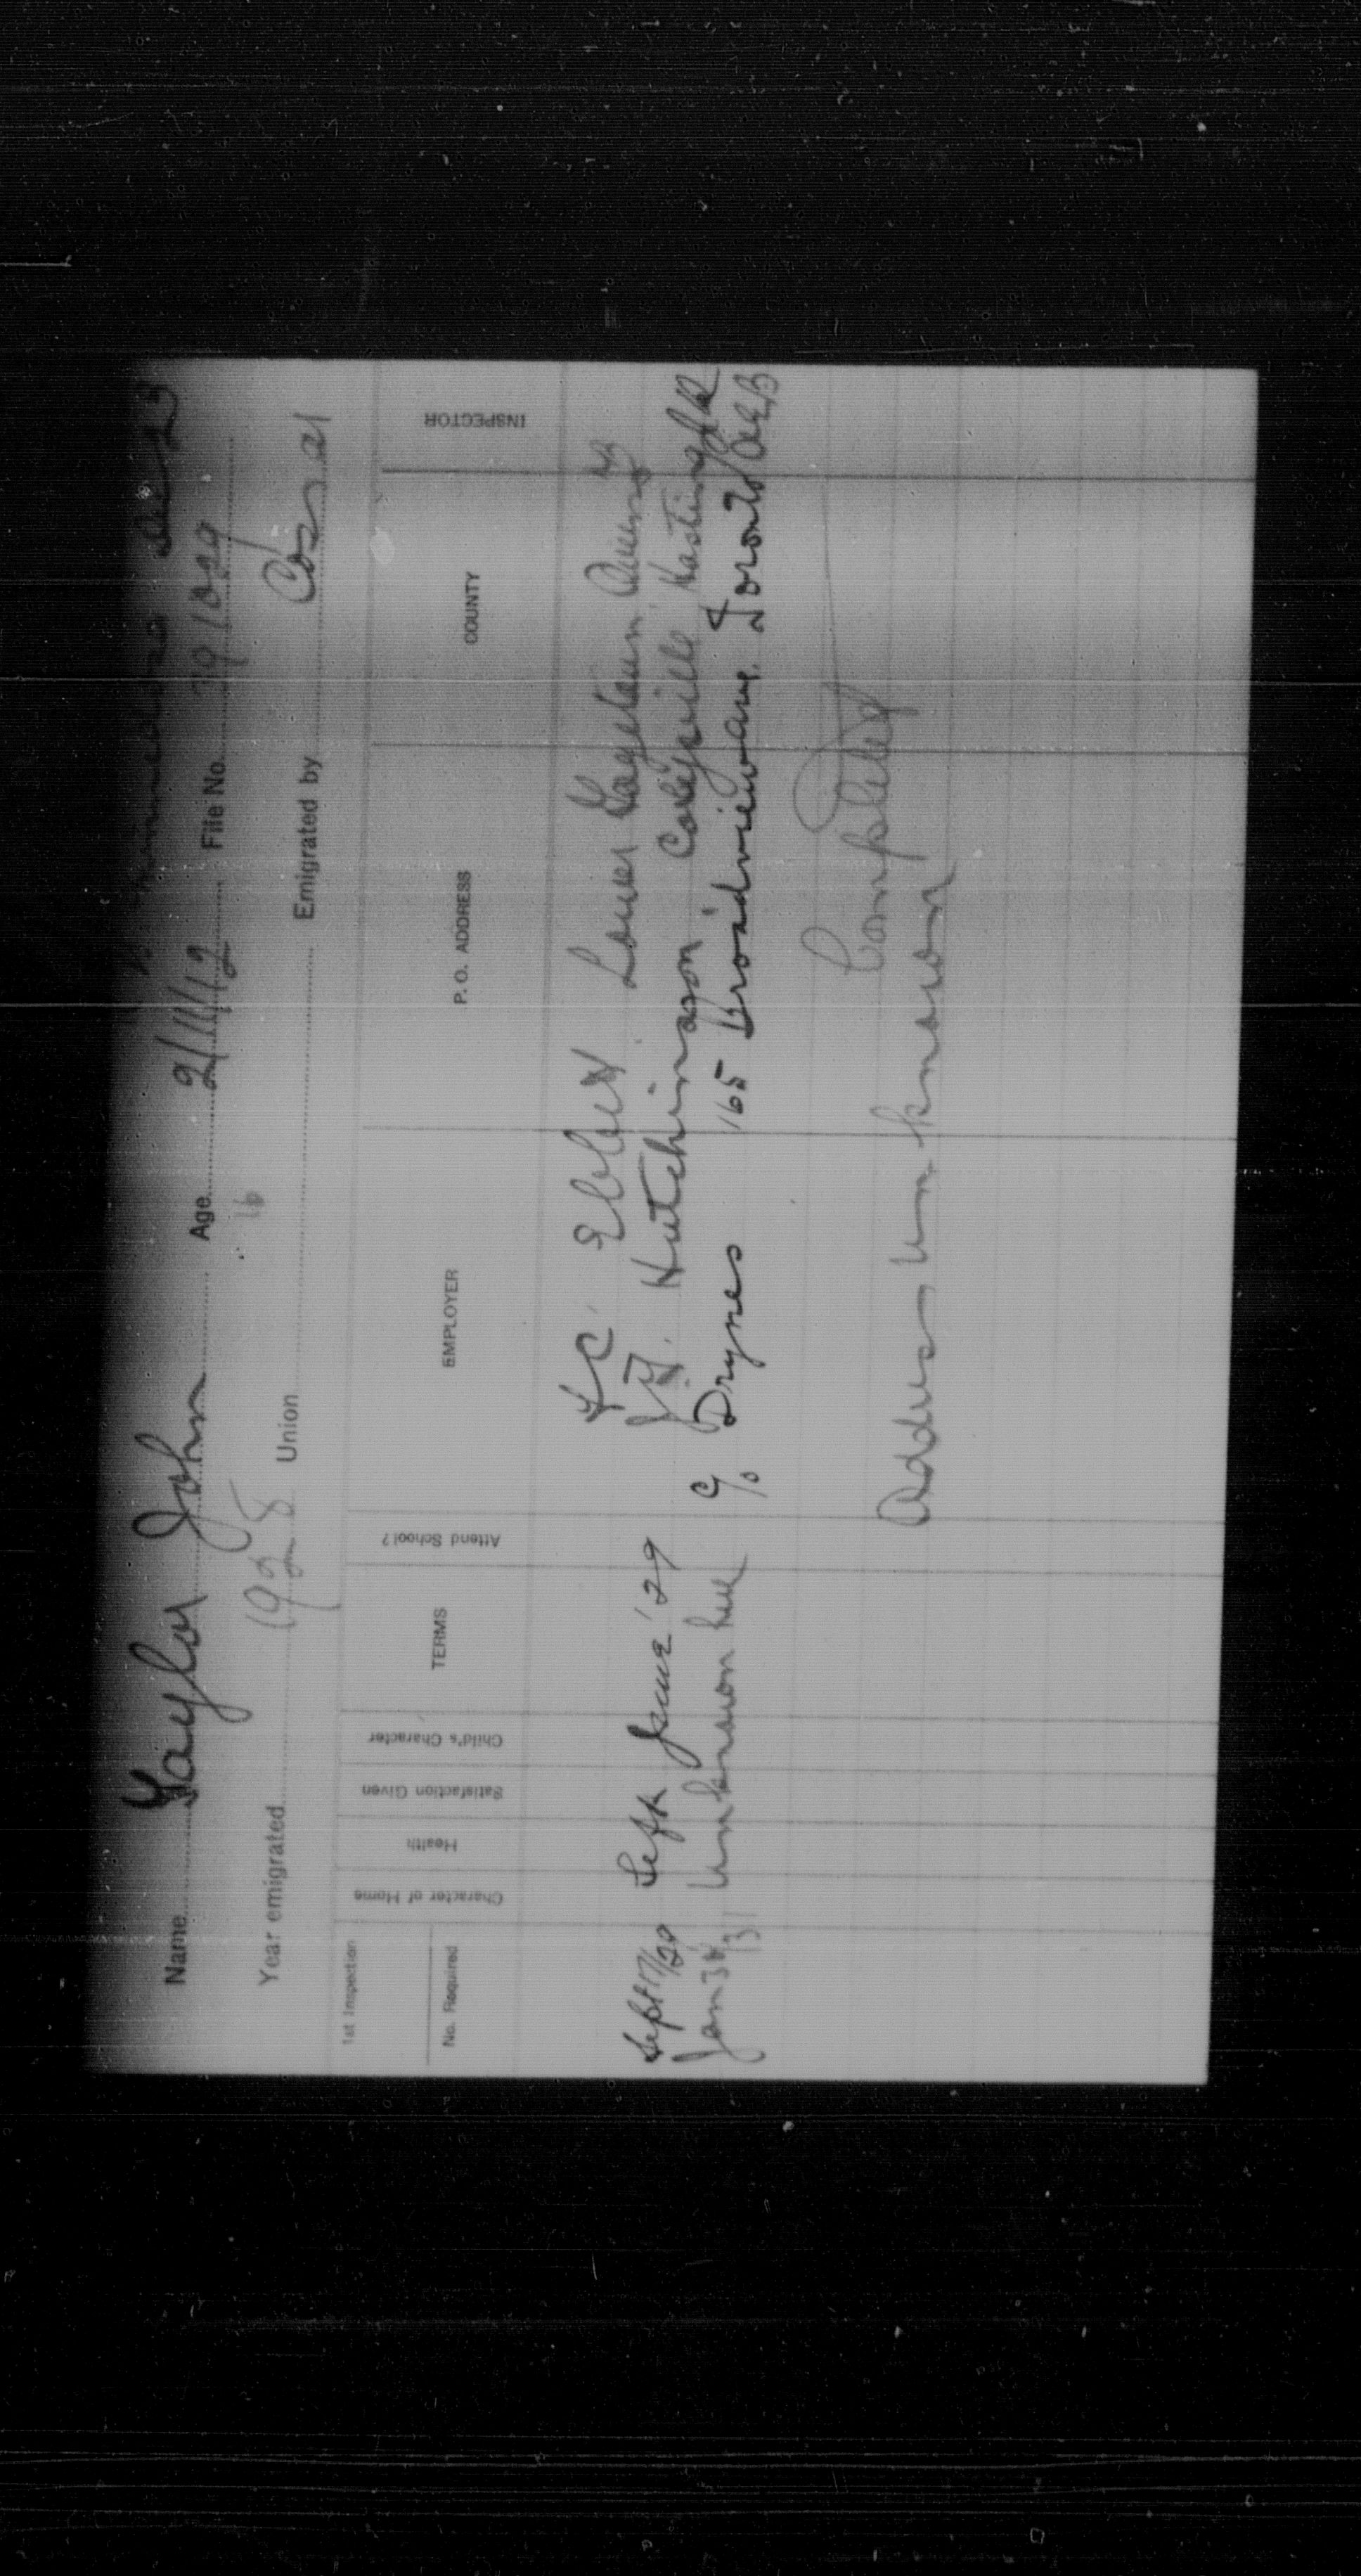 Name Taylor John Age 2/11/12 File No.
Year emigrated 1928 Union 16 Emigrated by Cossar
1st Inspection
No. Required
Character of Home
Health
Satisfaction Given
Child's Character
TERMS
Attend School?
EMPLOYER
P. O. ADDRESS
COUNTY
INSPECTOR
F C Lower Gagetown Queens NB
Sept 17/29 Left June '29 Hutchinson Hastings
Jan 31 Unknown here c/o Drynes 165 Broadview ave. Toronto
Completed
Address unknown